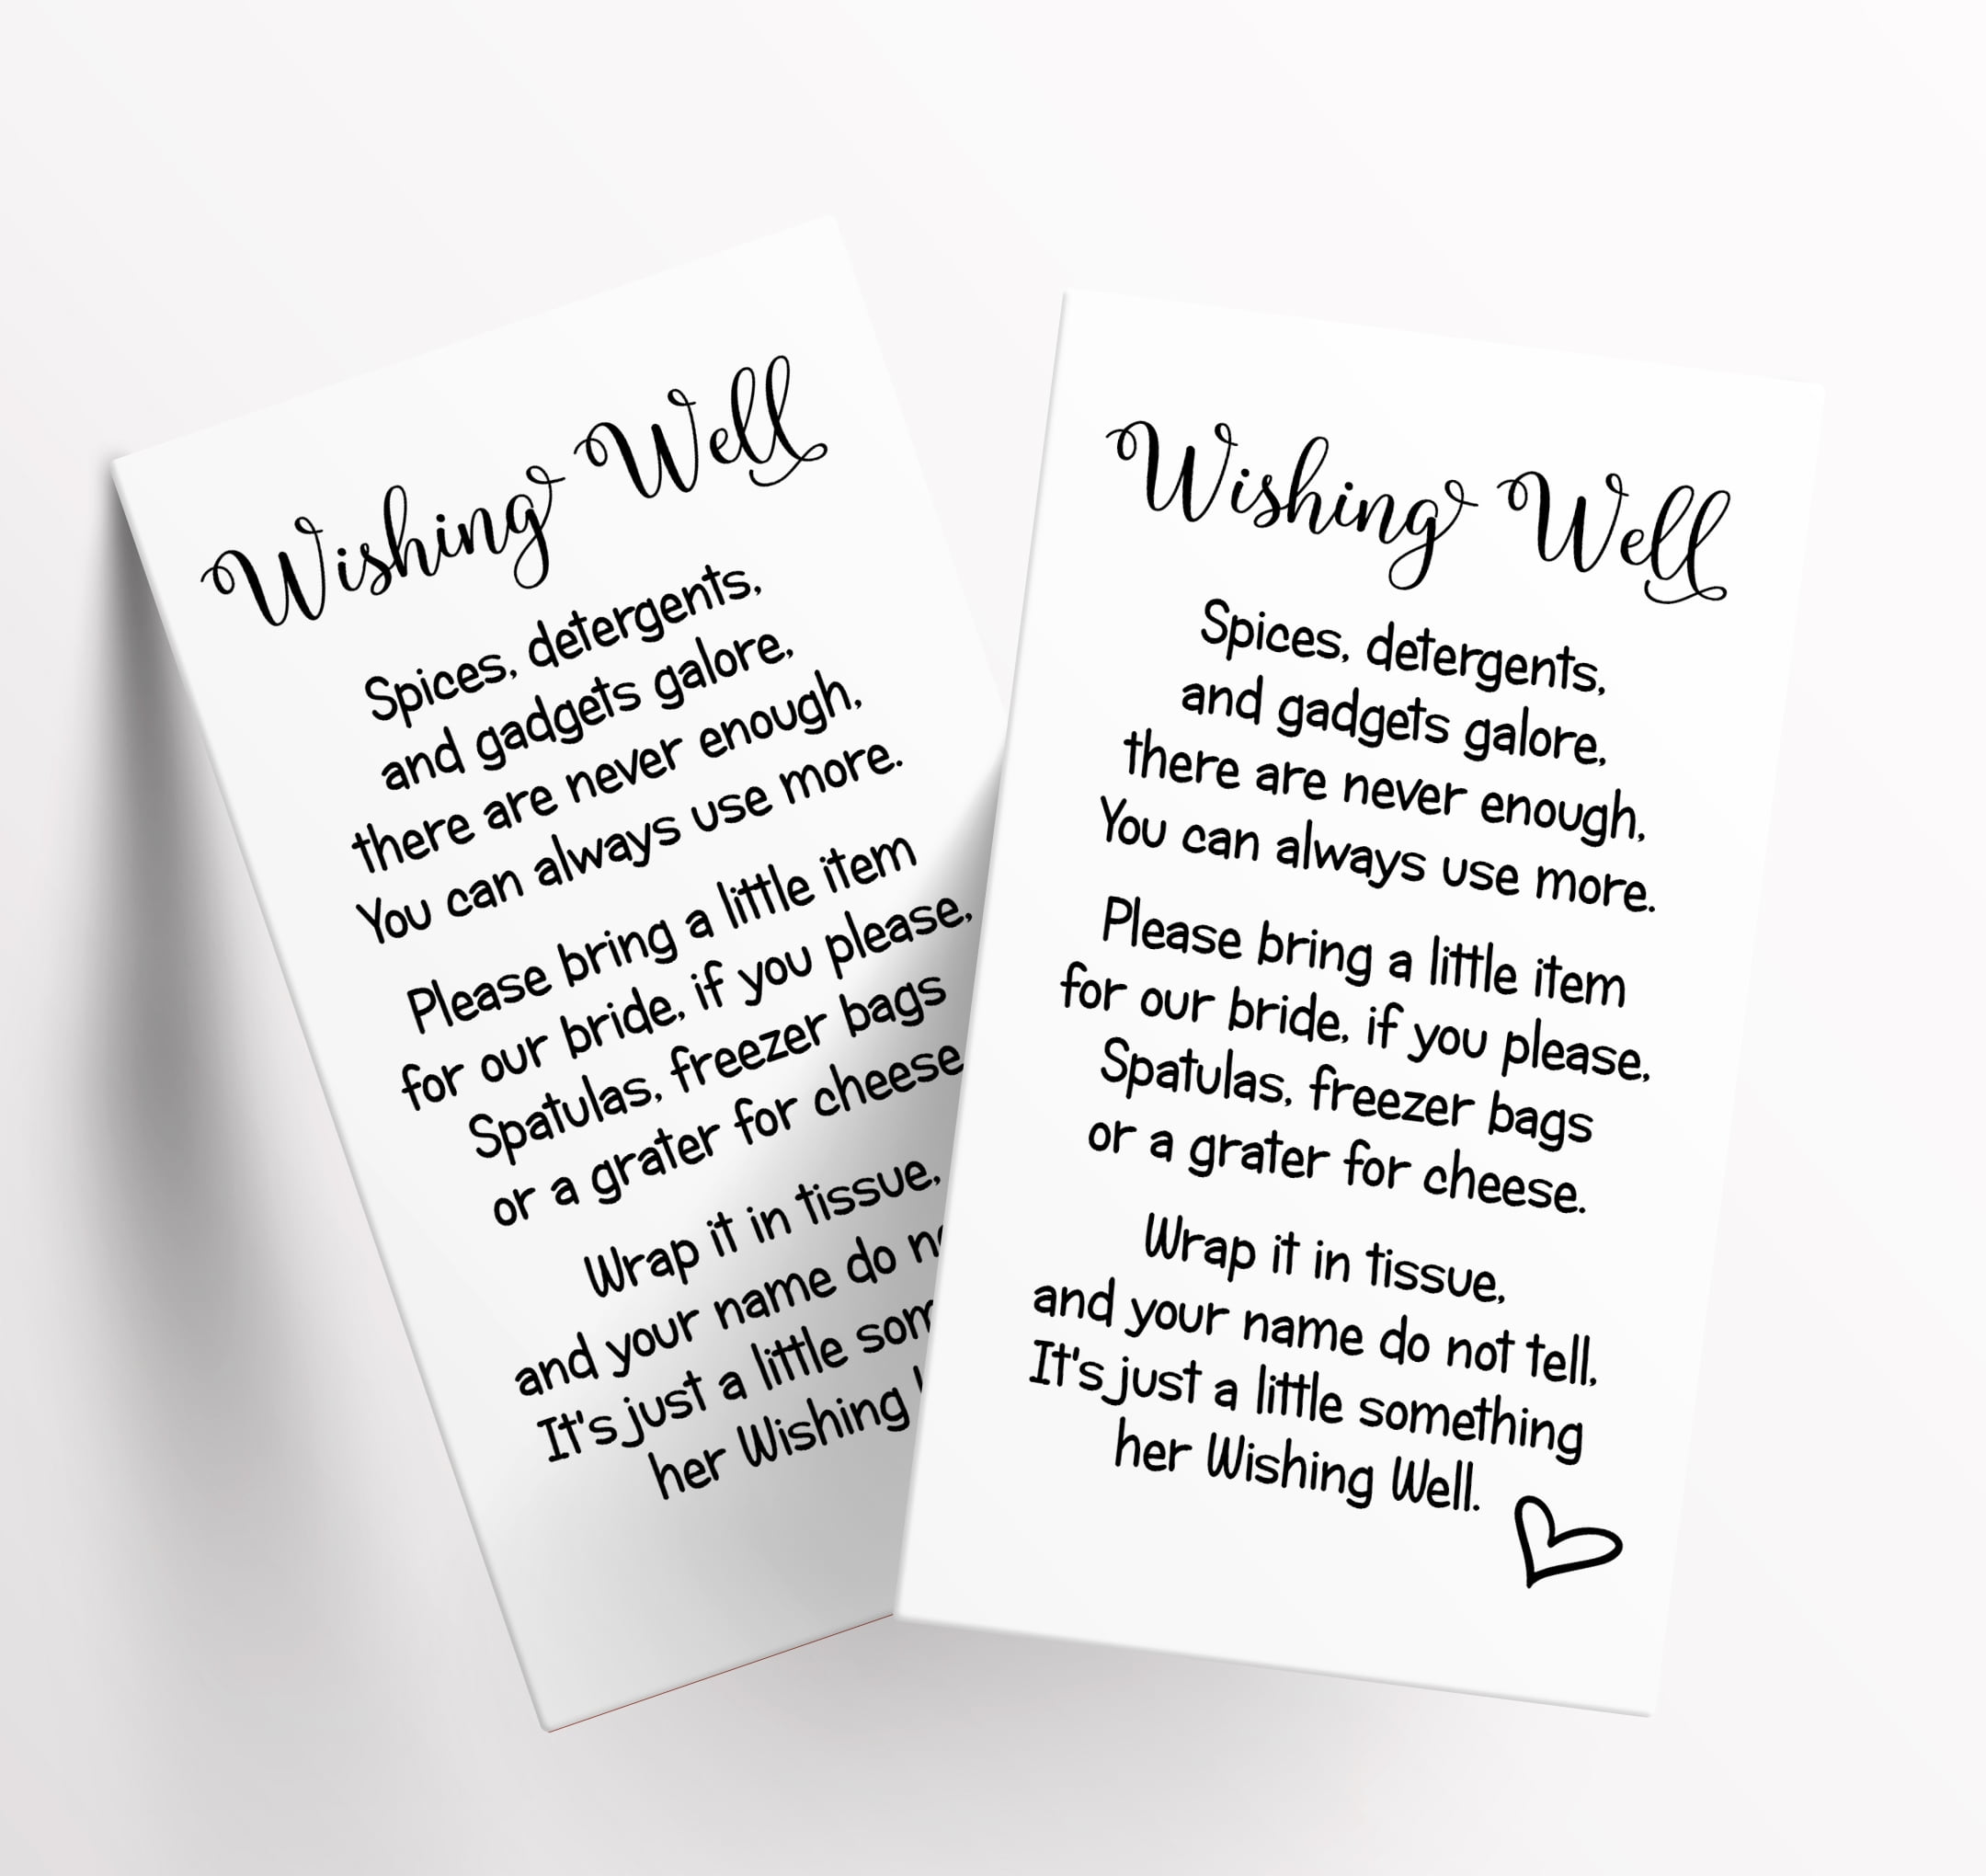 Wishing Well
Spices, detergents,
and gadgets galore,
there are never enough,
You can always use more.
Please bring a little item
for our bride, if you please,
Spatulas, freezer bags
or a grater for cheese
Wrap it in tissue,
and your name do
It's just a little
her Wishing
Wishing Well
Spices, detergents,
and gadgets galore,
there are never enough,
You can always use more.
Please bring a little item
for our bride, if you please,
Spatulas, freezer bags
or a grater for cheese.
Wrap it in tissue,
and your name do not tell,
It's just a little something
her Wishing Well.